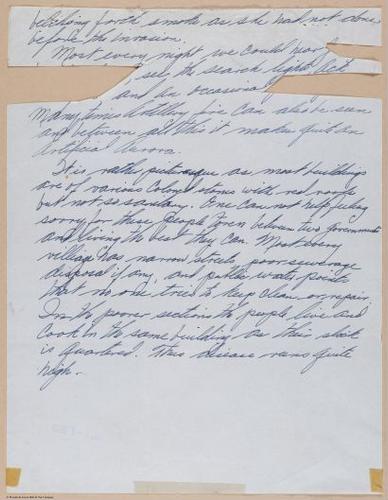 belching forth smoke as she had not done
before the invasion.
Most every night we could hear
see the search light act
and an occasional
Many times Artillery fire can also be seen
and between all this it makes quite an
Artificial Aurora.
It is rather picturesque as most buildings
are of various Colored stones with red roofs
but not so sanitary. One can not help feeling
sorry for these People torn between two governments
and living the best they can. Most every
village has narrow streets, poor sewerage
disposal if any, and public water points
that no one tries to keep clean or repair.
In the poorer sections the people live and
Cook in the same building as their stock
is quartered. Thus disease runs quite
high.